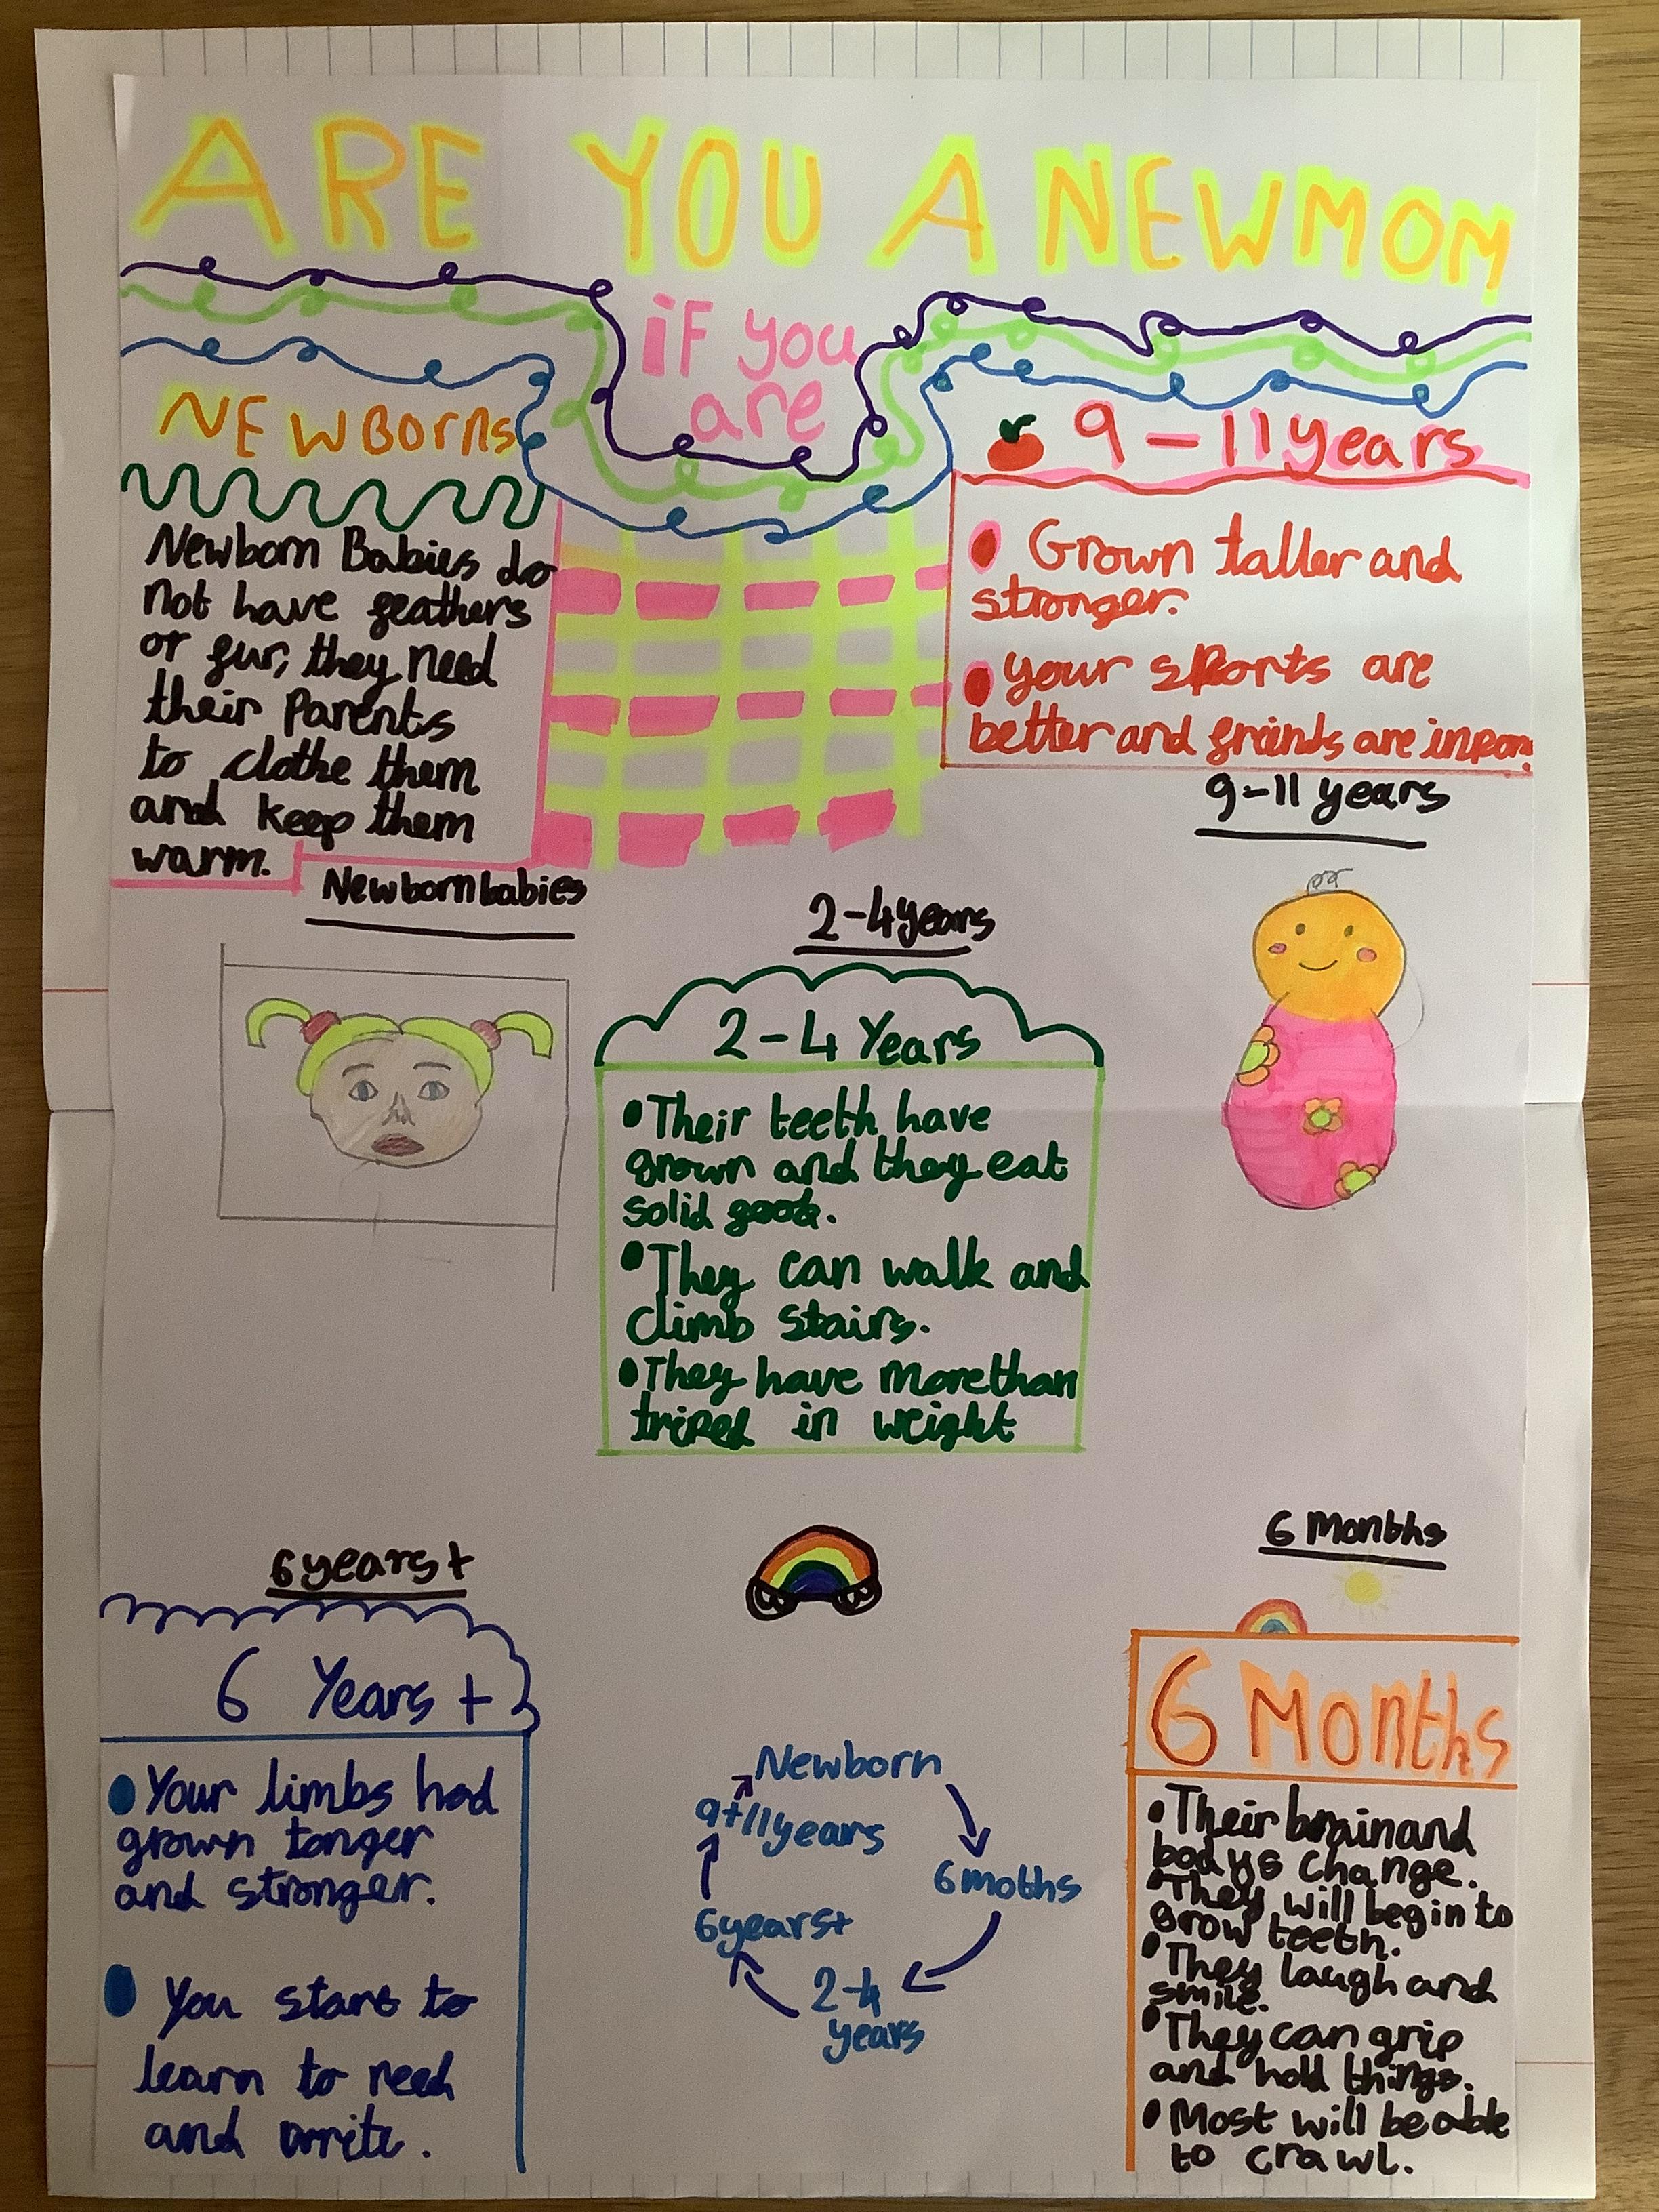 ARE YOU A NEW MOM
if you
are
NEWBORNS
Newborn Babies do
not have feathers
or fur, they need
their parents
to clothe them
and keep them
warm.
9-11 years
Grown taller and
stronger.
your sports are
better and freinds are inpor.
9-11 years
Newborn babies
2-4 years
2-4 Years
• Their teeth have
grown and they eat
solid food.
• They can walk and
climb stairs.
• They have more than
triped in weight
6 years +
6 Years +
• Your limbs had
grown longer
and stronger.
• You start to
learn to reed
and write.
Newborn
6 moths
2-4
years
6 years+
9+11 years
6 Months
6 Months
• Their brain and
bodys change.
• They will begin to
grow teeth.
• They laugh and
smile.
• They can grip
and hold things.
• Most will be able
to crawl.